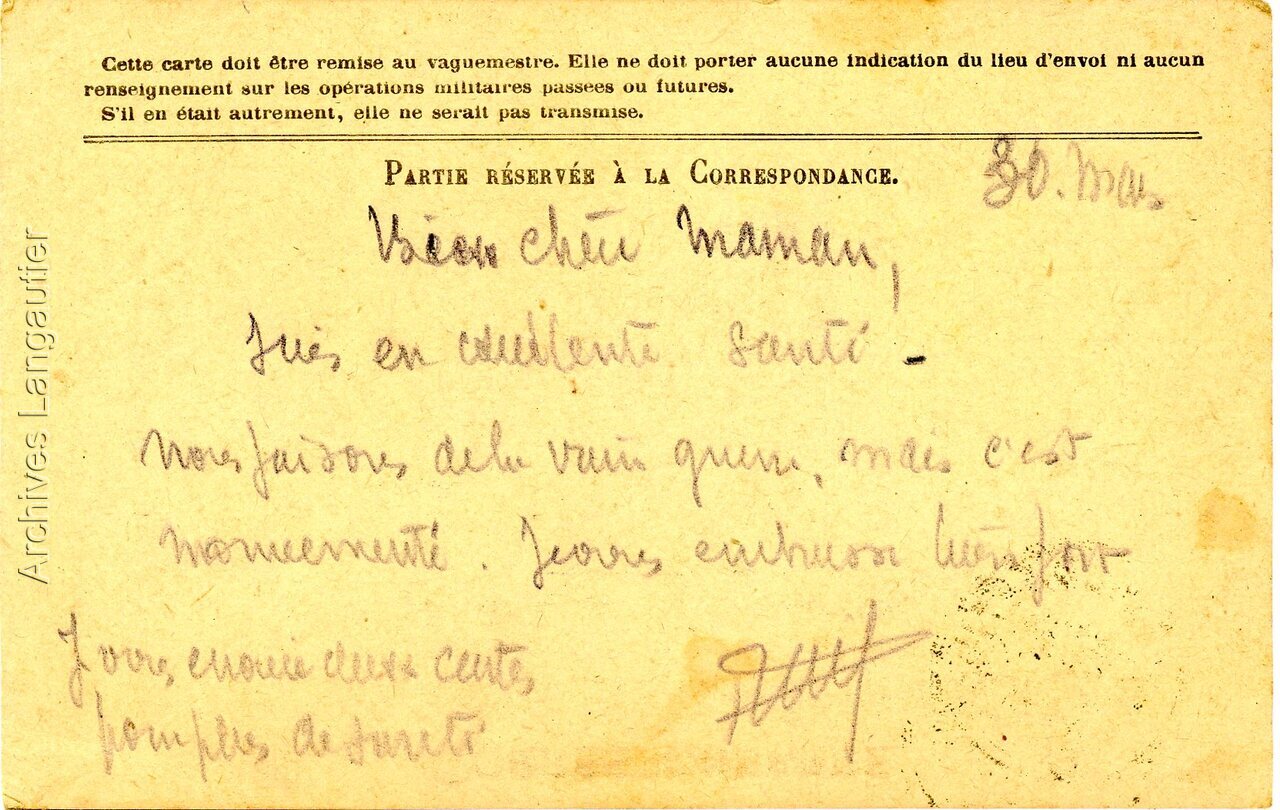 Cette carte doit être remise au vaguemestre. Elle ne doit porter aucune indication du lieu d'envoi ni aucun
renseignement sur les opérations militaires passées ou futures.
S'il en était autrement, elle ne serait pas transmise.
PARTIE RÉSERVÉE À LA CORRESPONDANCE.
30. Mars
Bien chère Maman,
Suis en excellente santé -
Nous faisons de la vraie guerre, mais c'est
mouvementé. Je vous embrasse bien fort
Je vous envoie deux cartes
de sureté
Archives Langautier